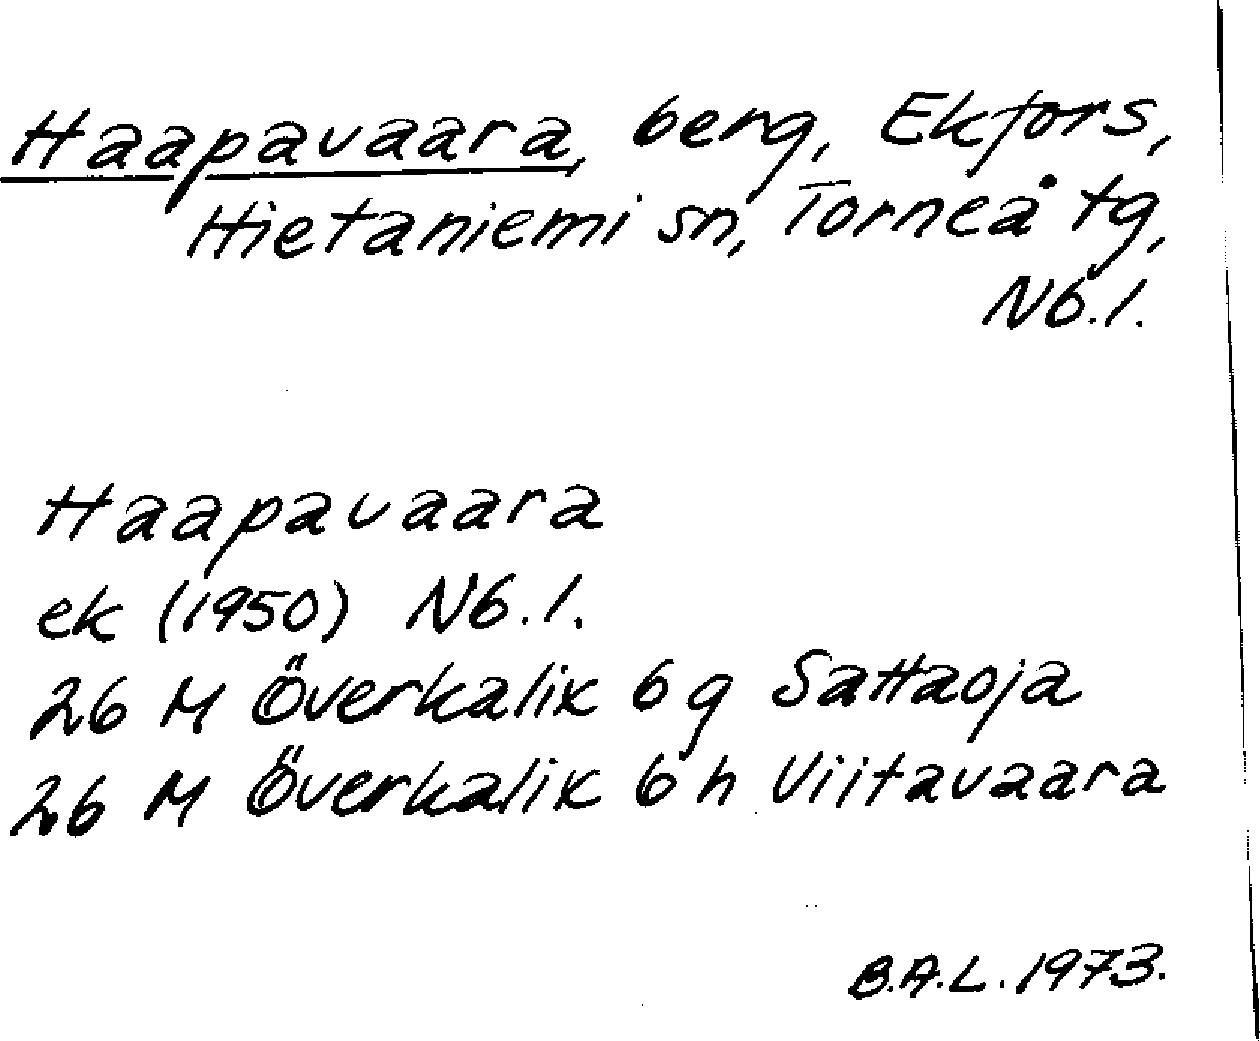 Haapavaara, berg, Ekfors,
Hietaniemi sn, Torneå tg,
Nb.l.
Haapavaara
ek (1950) Nb.l.
26 M Överkalix 6 g Sattaoja
26 M Överkalix 6 h Viitavaara
B.A.L. 1973.